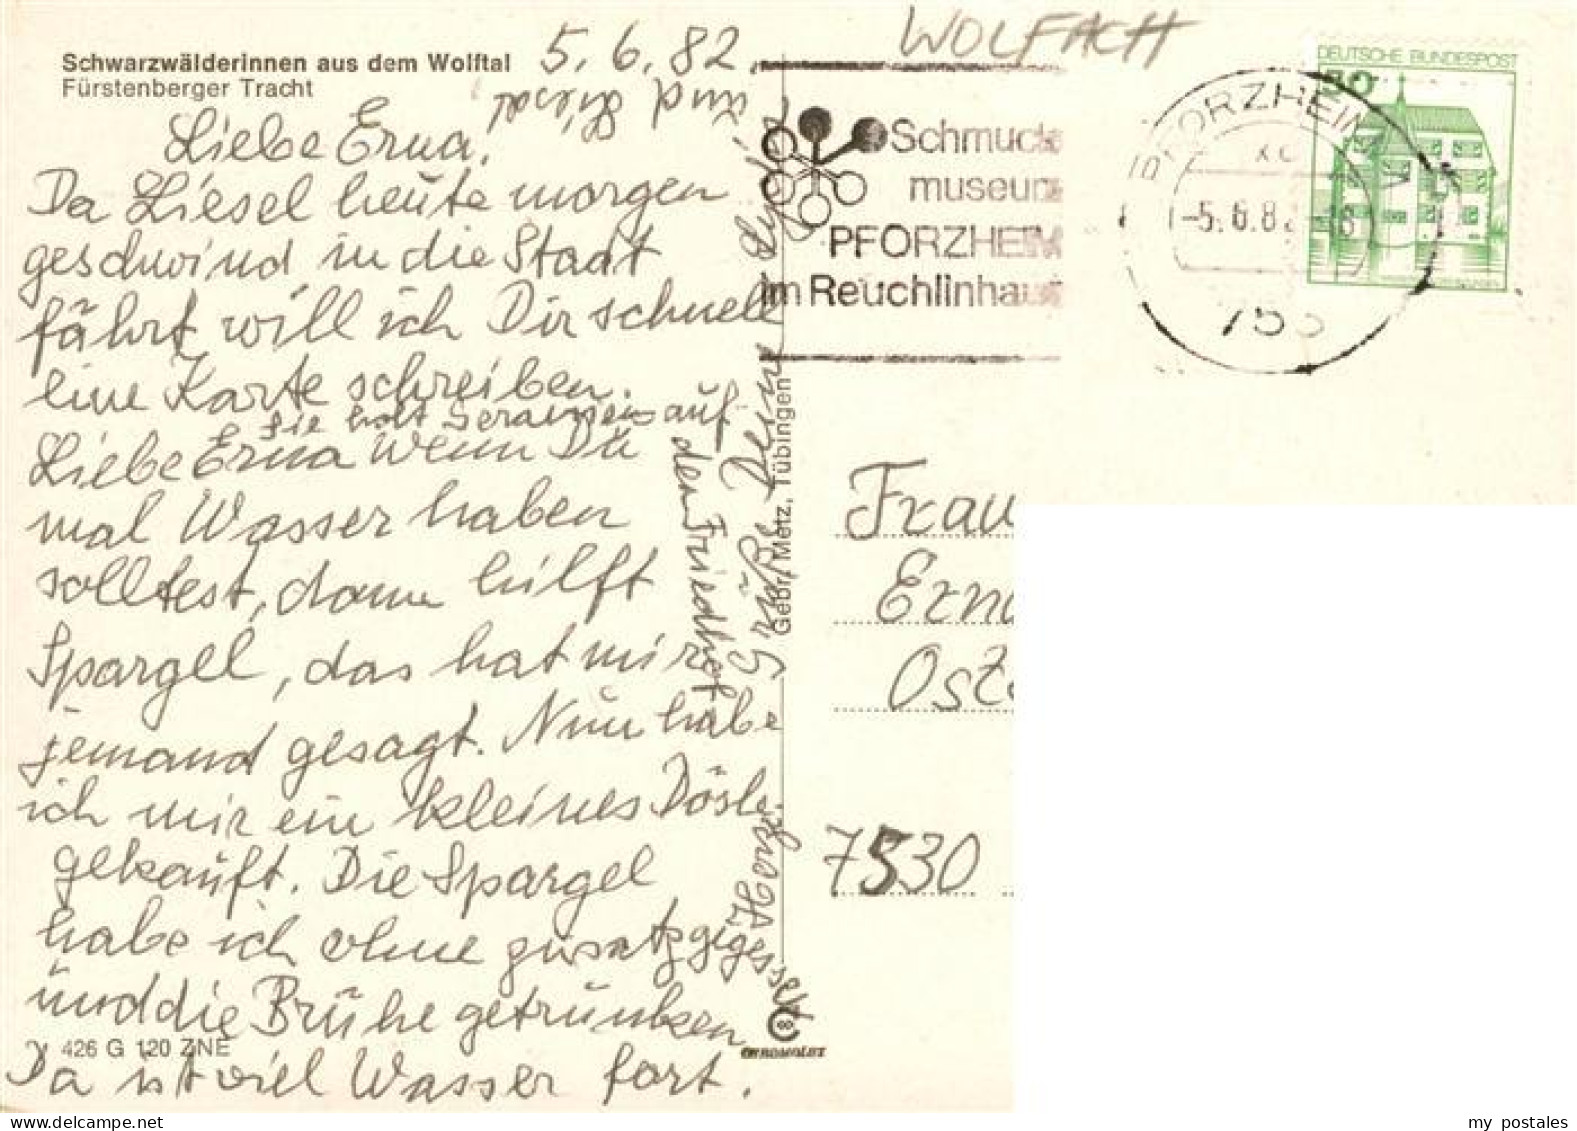 WOLFACH
Schwarzwälderinnen aus dem Wolftal
Fürstenberger Tracht
5.6.82.
Liebe Erna,
Da Liesel heute morgen
geschwind in die Stadt
fährt will ich Dir schnell
eine Karte schreiben.
Sie holt Geranien auf
den Friedhof
Liebe Erna Wenn Du
mal Wasser haben
solltest, dann hilft
Spargel, das hat mir
jemand gesagt. Nun habe
ich mir ein kleines Dösle
gekauft. Die Spargel
habe ich ohne zusatz gegessen
und die Brühe getrunken
Da ist viel Wasser fort.
Herzl. Grüße Deine
und
426 G 120 ZNE
Gebr. Metz, Tübingen
CHROMOLUX
Schmuck
museum
PFORZHEIM
im Reuchlinhaus
PFORZHEIM
-5.6.82
753
DEUTSCHE BUNDESPOST
50
Frau
Erna
7530
my postales